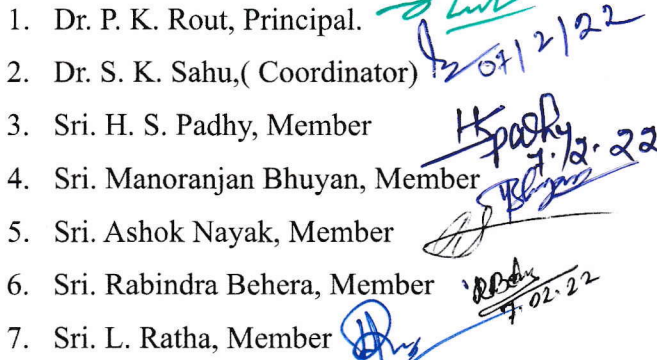 1. Dr. P. K. Rout, Principal.
2. Dr. S. K. Sahu,( Coordinator) 07/2/22
3. Sri. H. S. Padhy, Member HSPadhy 7.12.22
4. Sri. Manoranjan Bhuyan, Member Bhuyan
5. Sri. Ashok Nayak, Member
6. Sri. Rabindra Behera, Member 7.02.22
7. Sri. L. Ratha, Member